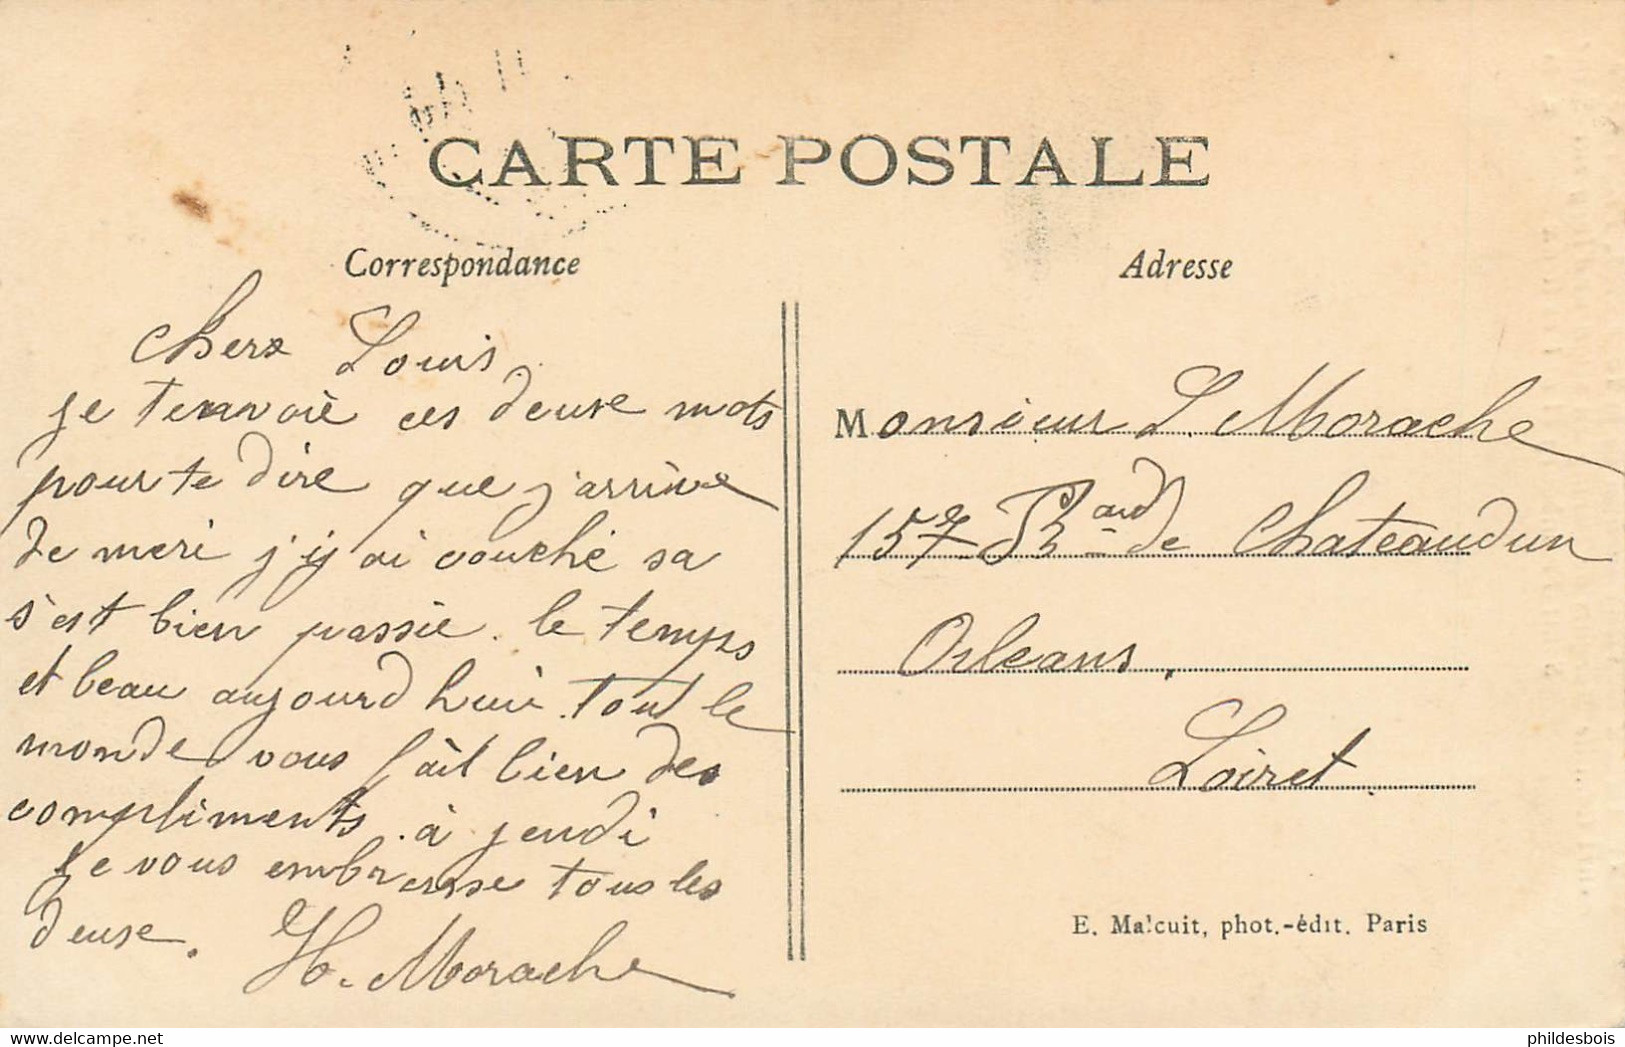 CARTE POSTALE
Correspondance
Cherx Louis
je tennvoie ces deuxe mots
pour te dire que j'arrive
de meri j'y ai couché sa
s'est bien passée. le temps
et beau aujourd huie. tout le
monde vous fait bien des
compliments. à jeudi
Je vous embrasse tous les
deuse.
H. Morache
Adresse
Monsieur L. Morache
157 Bard de Chateaudun
Orleans,
Loiret
E. Malcuit, phot.-édit. Paris
phildesbois